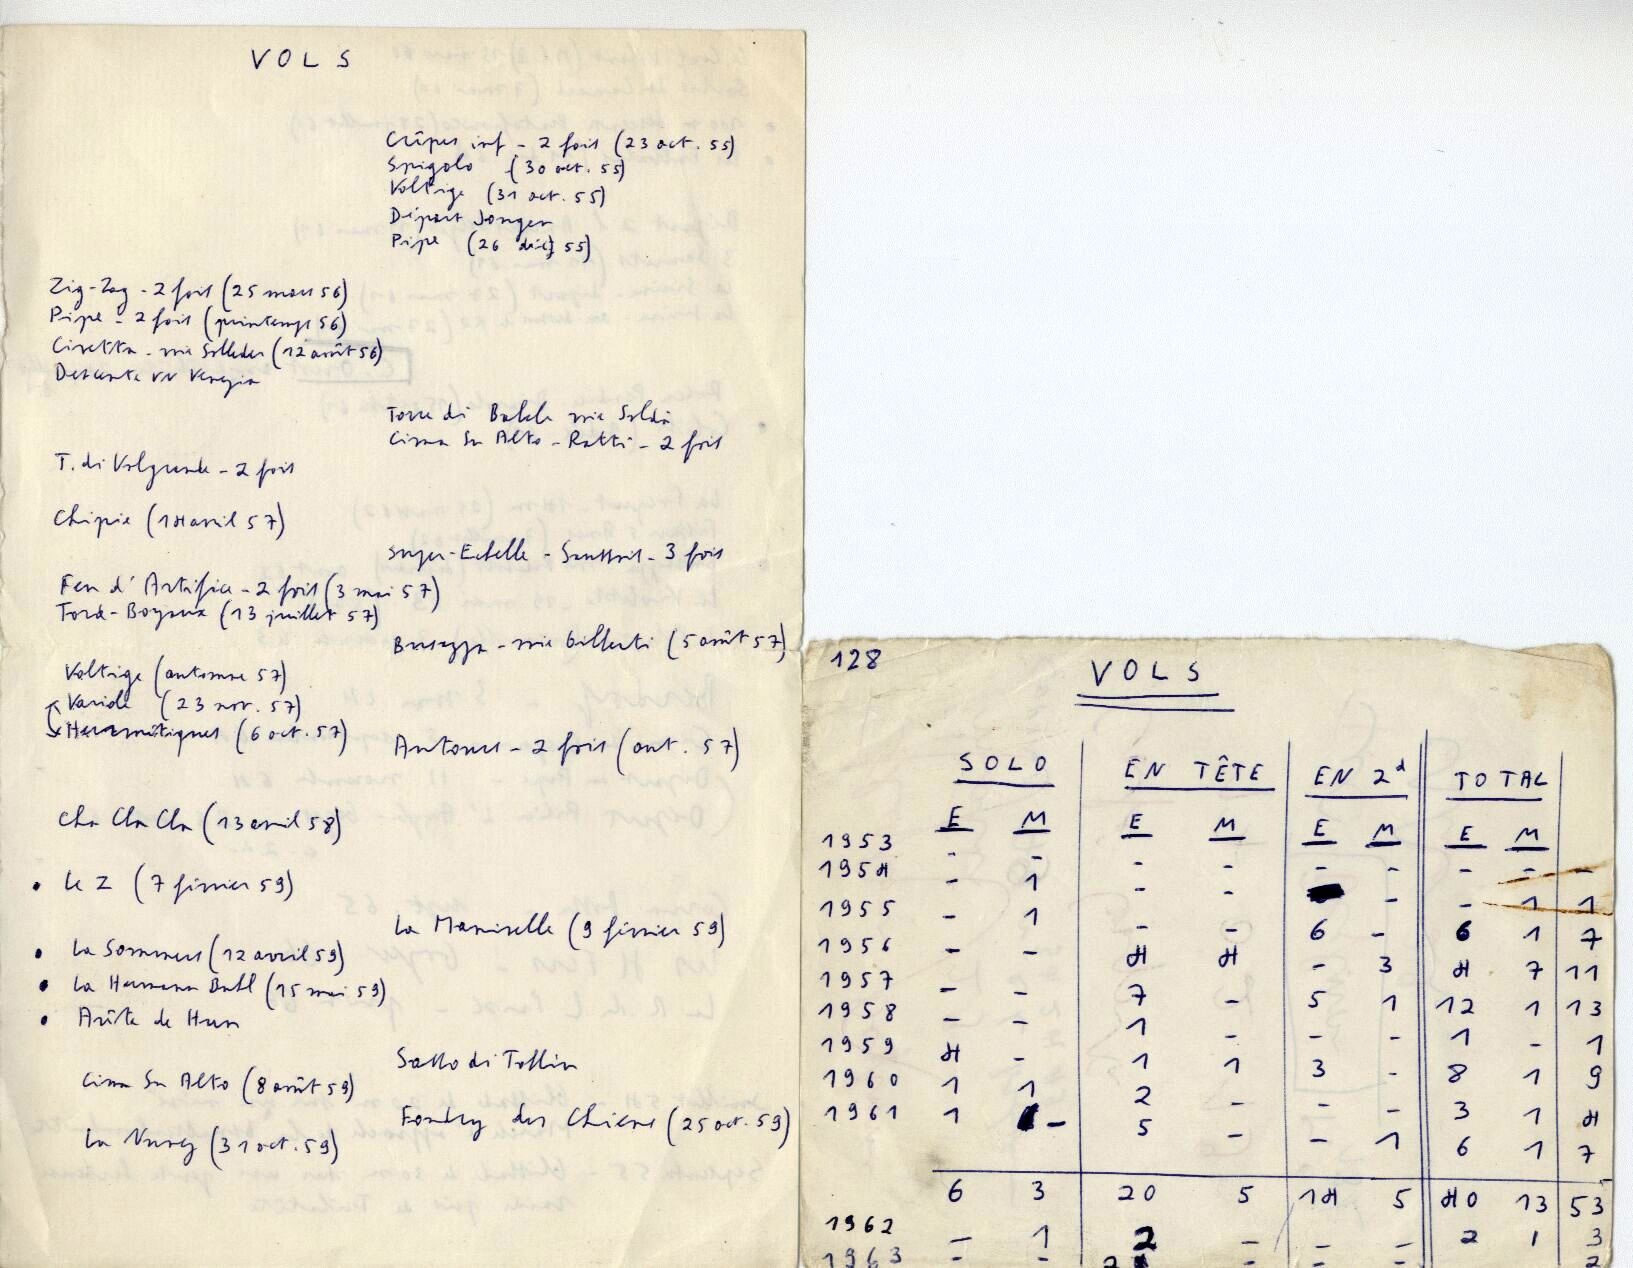 VOLS
Crêpes inf - 2 fois (23 oct. 55)
Spigolo (30 oct. 55)
Voltige (31 oct. 55)
Départ Jongen
Pipe (26 déc 55)
Zig-Zag - 2 fois (25 mars 56)
Pipe - 2 fois (printemps 56)
Civetta - via Solleder (12 août 56)
Descente VN Venezia
Torre di Babele via Soldà
Cima Su Alto - Ratti - 2 fois
T. di Valgrande - 2 fois
Chipie (14 avril 57)
Super-Echelle - Santhoit - 3 fois
Feu d'Artifice - 2 fois (3 mai 57)
Tord-Boyaux (13 juillet 57)
Busazza - via Gilberti (5 août 57)
Voltige (automne 57)
Variole (23 nov. 57)
Hermétiques (6 oct. 57)
Antones - 2 fois (oct. 57)
Cha Cha Cha (13 avril 58)
• Le Z (7 février 59)
La Mamiselle (9 février 59)
• La Sommers (12 avril 59)
• La Hermann Buhl (15 mai 59)
• Arête de Hun
Sasso di Toblin
Cima Su Alto (8 août 59)
Fondry des Chiens (25 oct. 59)
La Nurey (31 oct. 59)
128
VOLS
SOLO EN TÊTE EN 2d TOTAL
E M E M E M E M
1953 - - - - - - - - -
1954 - 1 - - - - 1 1
1955 - 1 - - 6 - 6 1 7
1956 - - 4 4 - 3 4 7 11
1957 - - 7 - 5 1 12 1 13
1958 - - 1 - - - 1 - 1
1959 4 - 1 1 3 - 8 1 9
1960 1 1 2 - - - 3 1 4
1961 1 - 5 - - 1 6 1 7
6 3 20 5 14 5 40 13 53
1962 - 1 2 - - - 2 1 3
1963 - - 2 - - - 2